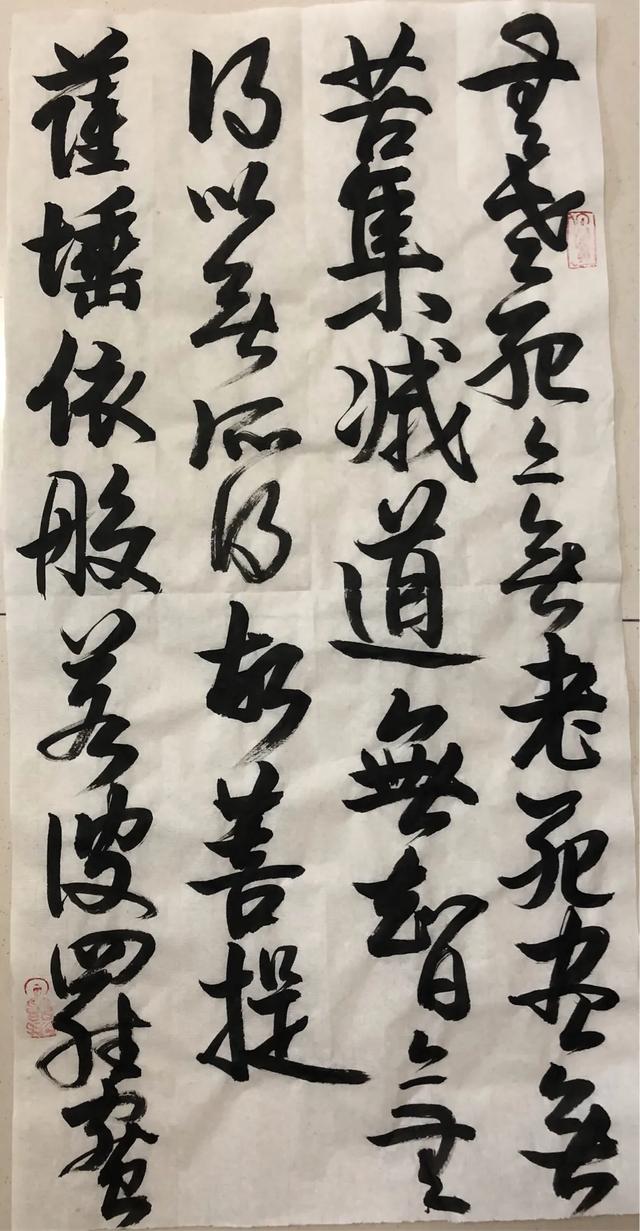 無老死亦無老死盡無
苦集滅道無智亦無
得以無所得故菩提
薩埵依般若波羅蜜